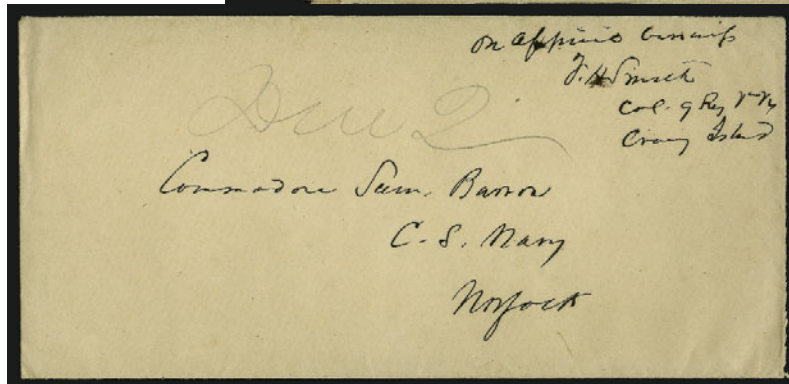 on official business
F. H. Smith
Col. 9 Reg V Vs
Craney Island
Due 2
Commodore Sam. Barron
C. S. Navy
Norfolk